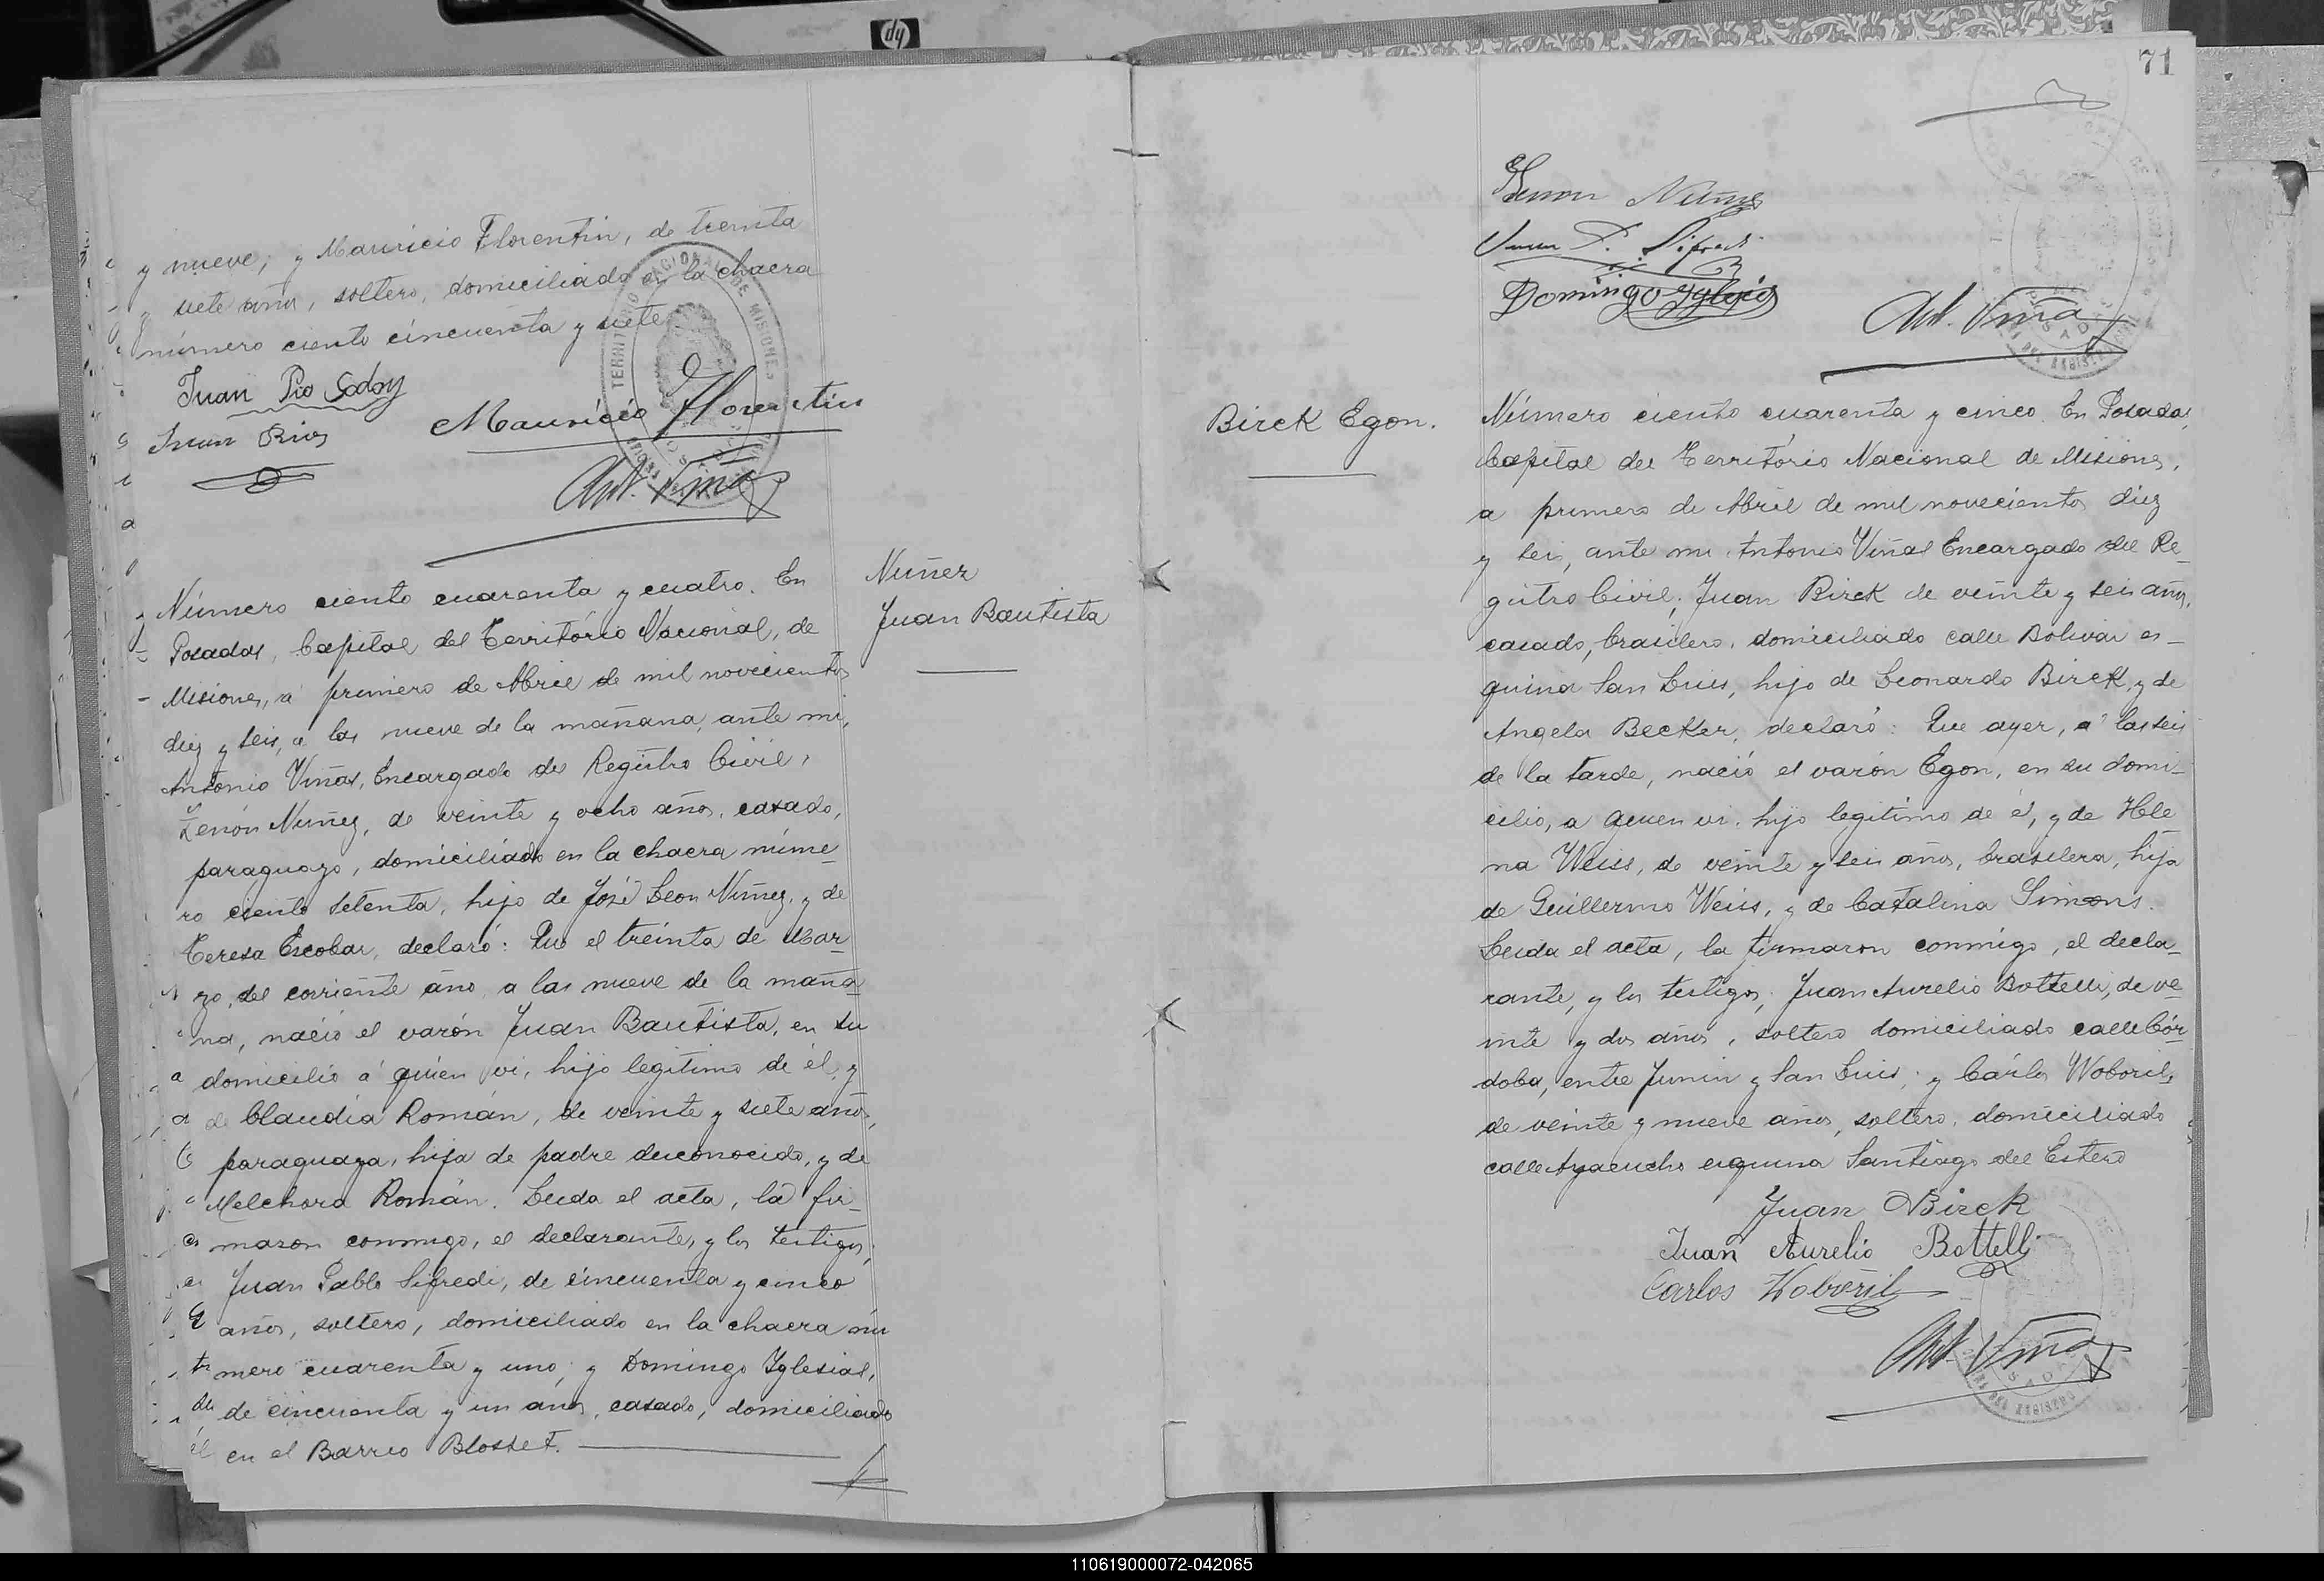 hp
y nueve; y Mauricio Florentin, de treinta
y siete años, soltero, domiciliado en la chacra
número ciento cincuenta y siete
TERRITORIO NACIONAL DE MISIONES
Juan Pio Godoy
Mauricio Florentin
Juan Rios
Ant. Viñas
Nuñez
Juan Bautista
Número ciento cuarenta y cuatro. En
Posadas, Capital del Território Nacional, de
Misiones, á primero de Abril de mil novecientos
diez y seis, á las nueve de la mañana, ante mi,
Antonio Viñas, Encargado del Registro Civil,
Zenón Nuñez, de veinte y ocho años, casado,
paraguayo, domiciliado en la chacra núme-
ro ciento setenta, hijo de José Leon Nuñez, y de
Teresa Escobar, declaró: Que el treinta de Mar-
zo, del corriente año, a las nueve de la maña-
na, nació el varón Juan Bautista, en su
domicilio á quien vi, hijo legitimo de él, y
de Claudia Román, de veinte y siete años,
paraguaya, hija de padre desconocido, y de
Melchora Román. Leida el acta, la fir-
maron conmigo, el declarante, y los testigos,
Juan Pablo Sifredi, de cincuenta y cinco
años, soltero, domiciliado en la chacra nú
mero cuarenta y uno; y Domingo Yglesias,
de cincuenta y un años, casado, domiciliado
en el Barrio Blosset.
71
Zenon Nuñez
Juan P. Sifredi
Domingo Yglesias
Ant. Viñas
Birck Egon.
Número ciento cuarenta y cinco. En Posadas,
Capital del Território Nacional de Misiones,
a primero de Abril de mil novecientos diez
y seis, ante mi Antonio Viñas Encargado del Re-
gistro Civil; Juan Birck de veinte y seis años,
casado, brasilero, domiciliado calle Bolivar es-
quina San Luis, hijo de Leonardo Birck, y de
Angela Becker, declaró: Que ayer, a las seis
de la tarde, nació el varón Egon, en su domi-
cilio, a quien vi, hijo legitimo de él, y de Hele
na Weiss, de veinte y seis años, brasilera, hija
de Guillermo Weiss, y de Catalina Simons.
Leida el acta, la firmaron conmigo, el decla-
rante, y los testigos, Juan Aurelio Bottelli, de ve-
inte y dos años, soltero domiciliado calle Cór-
doba, entre Junin y San Luis; y Cárlos Woboril,
de veinte y nueve años, soltero, domiciliado
calle Ayacucho esquina Santiago del Estero
Juan Birck
Juan Aurelio Bottelli
Carlos Woboril
Ant. Viñas
110619000072-042065